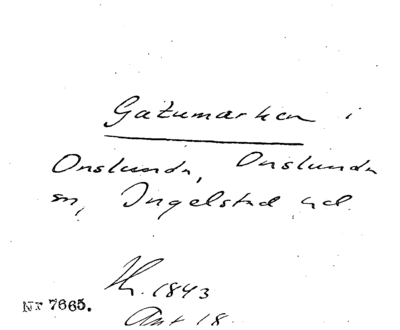 Gatumarken i
Onslunda, Onslunda
sn, Ingelstad hd.
H. 1843
Ant 18
Nr 7665.